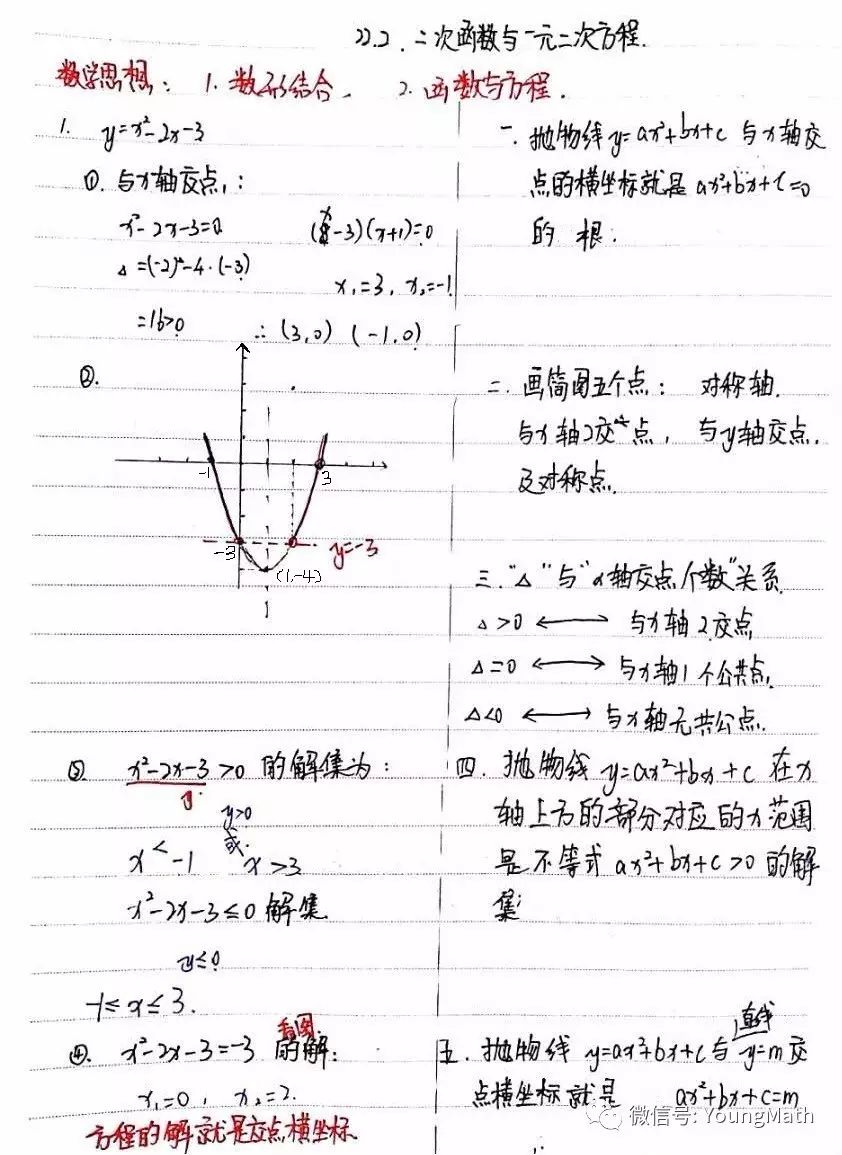 22.2. 二次函数与一元二次方程.
数学思想: 1. 数形结合. 2. 函数与方程.
1. y=x²-2x-3
①. 与x轴交点:
x²-2x-3=0 (x-3)(x+1)=0
△=(-2)²-4·(-3)
x₁=3, x₂=-1
=16>0 ∴(3,0) (-1,0)
②.
-1
3
-3
y=-3
(1,-4)
③ x²-2x-3>0 的解集为:
y
y>0
x<-1 或 x>3
x²-2x-3≤0 解集
y≤0
-1≤x≤3.
看图
④. x²-2x-3=-3 的解:
x₁=0, x₂=2.
方程的解就是交点横坐标
一. 抛物线y=ax²+bx+c 与x轴交
点的横坐标就是ax²+bx+c=0
的 根.
二. 画简图五个点: 对称轴.
与x轴2交点, 与y轴交点.
及对称点.
三."△"与"x轴交点个数"关系
△>0 ⟷ 与x轴2交点
△=0 ⟷ 与x轴1个公共点.
△<0 ⟷ 与x轴无共公点.
四. 抛物线 y=ax²+bx+c 在x
轴上方的部分对应的x范围
是不等式 ax²+bx+c>0 的解
集
直线
五. 抛物线 y=ax²+bx+c与 y=m交
点横坐标就是 ax²+bx+c=m
微信号: YoungMath